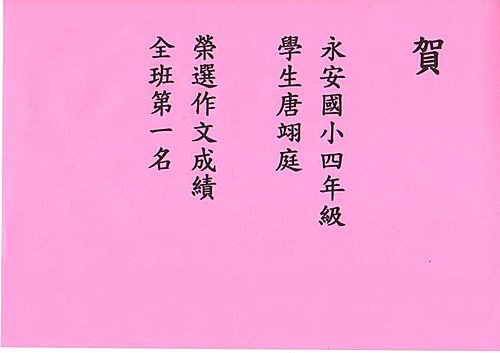 賀
永安國小四年級
學生唐翊庭
榮選作文成績
全班第一名